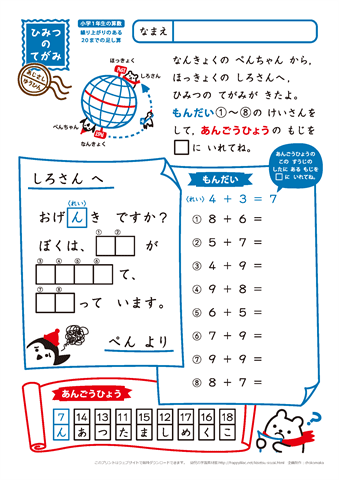 ひみつ
の
てがみ
小学1年生の算数
繰り上がりのある
20までの足し算
なまえ
あじさし
ゆうびん
ほっきょく
しろさん
ぺんちゃん
なんきょく
なんきょくの ぺんちゃん から、
ほっきょくの しろさんへ、
ひみつの てがみが きたよ。
もんだい①〜⑧の けいさんを
して、あんごうひょうの もじを
□に いれてね。
あんごうひょうの
この すうじの
したに ある もじを
□に いれてね。
しろさん へ
(れい)
おげんき ですか?
① ②
ぼくは、 が
③ ④ ⑤ ⑥
て、
⑦ ⑧
って います。
ぺん より
もんだい
(れい) 4 + 3 = 7
① 8 + 6 =
② 5 + 7 =
③ 4 + 9 =
④ 8 + 8 =
⑤ 6 + 5 =
⑥ 7 + 9 =
⑦ 9 + 9 =
⑧ 8 + 7 =
あんごうひょう
7 14 13 11 15 12 17 16 18
ん あ つ た ま し め く こ